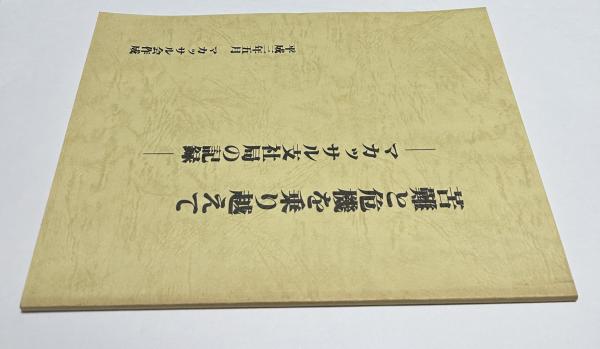 苦難と危機を乗り越えて
―マカッサル支社局の記録―
平成二年五月　マカッサル会作成